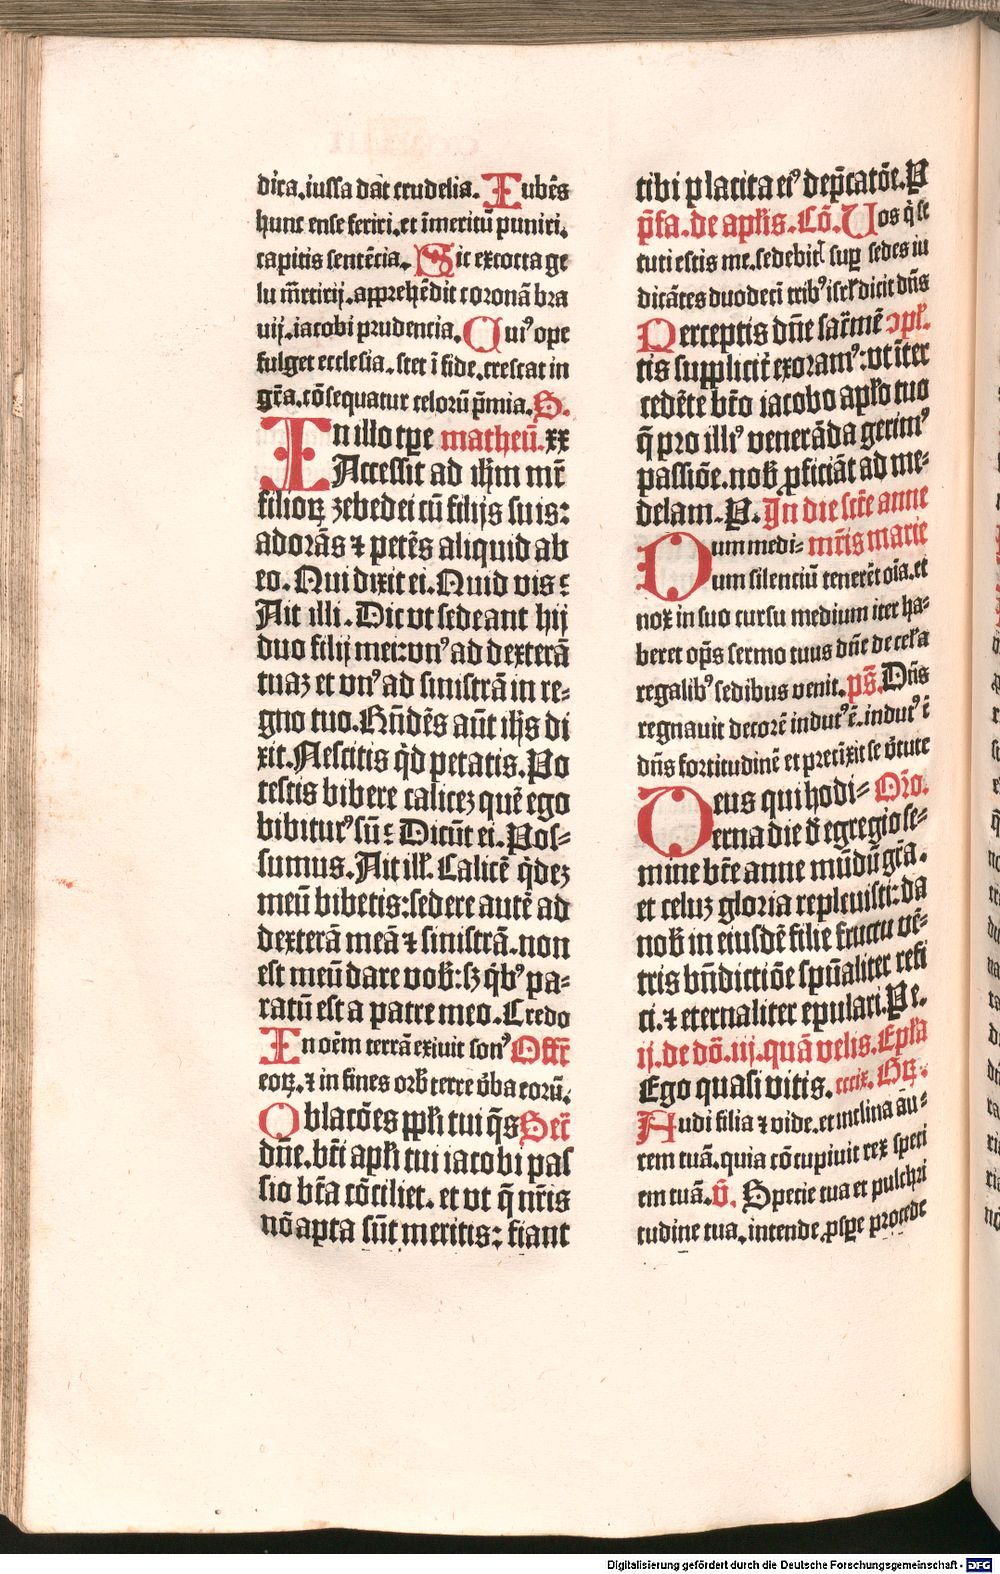 dira. iussa dat crudelia. Iubēs
hunc ense feriri. et īmeritū puniri.
capitis sentēcia. Sic excocta ge
lu m̄rtirij. apprehēdit coronā bra
uij. iacobi prudencia. Qui⁹ ope
fulget ecclesia. stet ī fide. crescat in
gr̄a. cōsequatur celorū p̄mia. S.
In illo tpe matheū. xx
Accessit ad ih̄m mr̄
filioꝝ zebedei cū filijs suis:
adorās ⁊ petēs aliquid ab
eo. Qui dixit ei. Quid vis:
Ait illi. Dic vt sedeant hij
duo filij mei: vn⁹ ad dexterā
tuaz et vn⁹ ad sinistrā in re⸗
gno tuo. Rn̄dēs aūt ih̄s di
xit. Nescitis q̄d petatis. Po
testis bibere calicez quē ego
bibitur⁹ sū: Dicūt ei. Pos⸗
sumus. Ait ill. Calicē q̄dez
meū bibetis: sedere autē ad
dexterā meā ⁊ sinistrā. non
est meū dare vob̄: sz q̄b⁹ pa⸗
ratū est a patre meo. Credo
In oēm terrā exiuit son⁹ Offr̄
eoꝝ. ⁊ in fines orb̄ terre v̄ba eorū.
Oblacōes ppl̄i tui q̄s Secr̄
dn̄e. bt̄i apl̄i tui iacobi pas
sio bt̄a cōciliet. et vt q̄ nr̄is
nō apta sūt meritis: fiant
tibi placita et⁹ dep̄catōe. P
p̄fa. de apl̄is. Cō. Uos q̄ se
cuti estis me. sedebit sup sedes iu
dicātes duodeci trib⁹ isrl̄ dicit dn̄s
Perceptis dn̄e sacr̄mē ɔpl.
tis supplicit̄ exoram⁹: vt īter
cedēte bt̄o iacobo apl̄o tuo
q̄ pro illi⁹ venerāda gerim⁹
passiōe. nob̄ ꝓficiāt ad me⸗
delam. P. In die sct̄e anne
Dum medi⸗ mr̄is marie
um silenciū tenerēt oīa. et
nox in suo cursu medium iter ha⸗
beret op̄s sermo tuus dn̄e de cel̄a
regalib⁹ sedibus venit. ps̄. Dn̄s
regnauit decorē indut⁹ ē. indut⁹ ē
dn̄s fortitudinē et precīxit se v̄tute
Deus qui hodi⸗ Orō.
erna die de egregio se⸗
mine bt̄e anne mūdū gr̄a.
et celuz gloria repleuisti: da
nob̄ in eiusdē filie fructu vē⸗
tris bn̄dictiōe spūaliter refi
ci. ⁊ eternaliter epulari. Pe.
ij. de dō. iij. quā velis. Epl̄a
Ego quasi vitis. cccix. Gꝝ.
Audi filia ⁊ vide. et inclina au⸗
rem tuā. quia cōcupiuit rex speci
em tuā. v̄. Specie tua et pulchri
tudine tua. intende ꝓspe procede
Digitalisierung gefördert durch die Deutsche Forschungsgemeinschaft - DFG